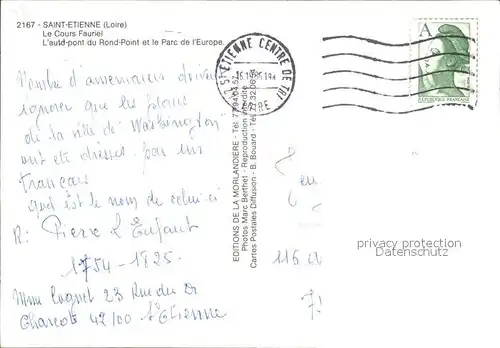 2167 - SAINT-ETIENNE (Loire)
Le Cours Fauriel
L'auto-pont du Rond-Point et le Parc de l'Europe.
Nombre d'americains doivent
ignorer que les plans
de la ville de "Washington"
ont été dressés par un
français
quel est le nom de celui-ci
R: Pierre L'Enfant
1754-1825.
Mme 23 Rue du Dr
Charcot 42100 St Etienne
EDITIONS DE LA MORLANDIERE - Tél 77
Photos Marc Berthet - Reproduction interdite
Cartes Postales Diffusion - B. Bouard - Tél
ST-ETIENNE CENTRE DE TRI
LOIRE
A
REPUBLIQUE FRANÇAISE
en
116
privacy protection
Datenschutz